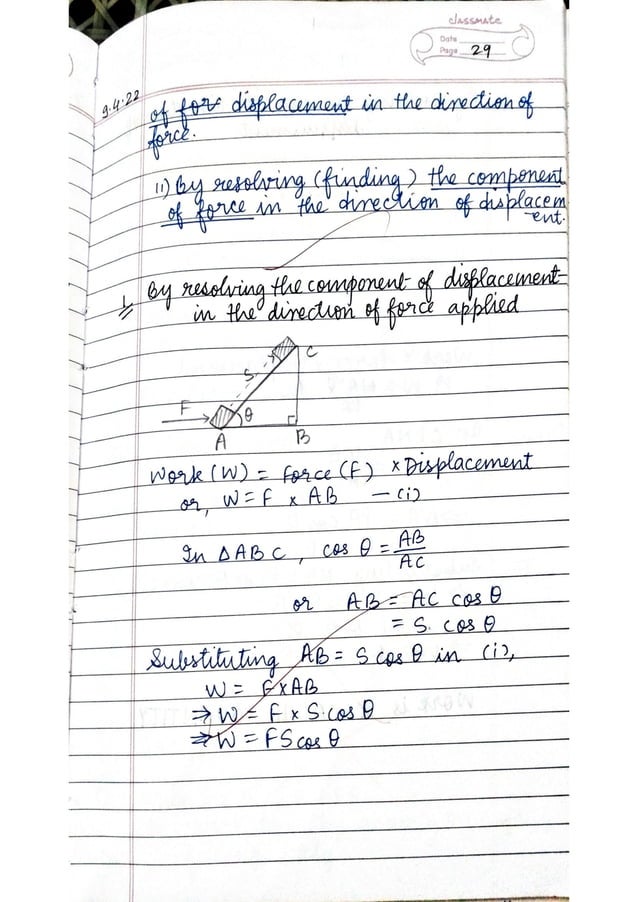 classmate
Date
Page 29
9.4.22
of for displacement in the direction of
force.
ii) By resolving (finding) the component
of force in the direction of displacem
-ent.
1 By resolving the component of displacement
in the direction of force applied
S
C
F
θ
A
B
Work (W) = Force (F) × Displacement
or, W = F × AB — (i)
In Δ ABC, cos θ = AB/AC
or AB = AC cos θ
= S. cos θ
Substituting AB = S cos θ in (i),
W = F×AB
⇒ W = F × S.cos θ
⇒ W = FS cos θ